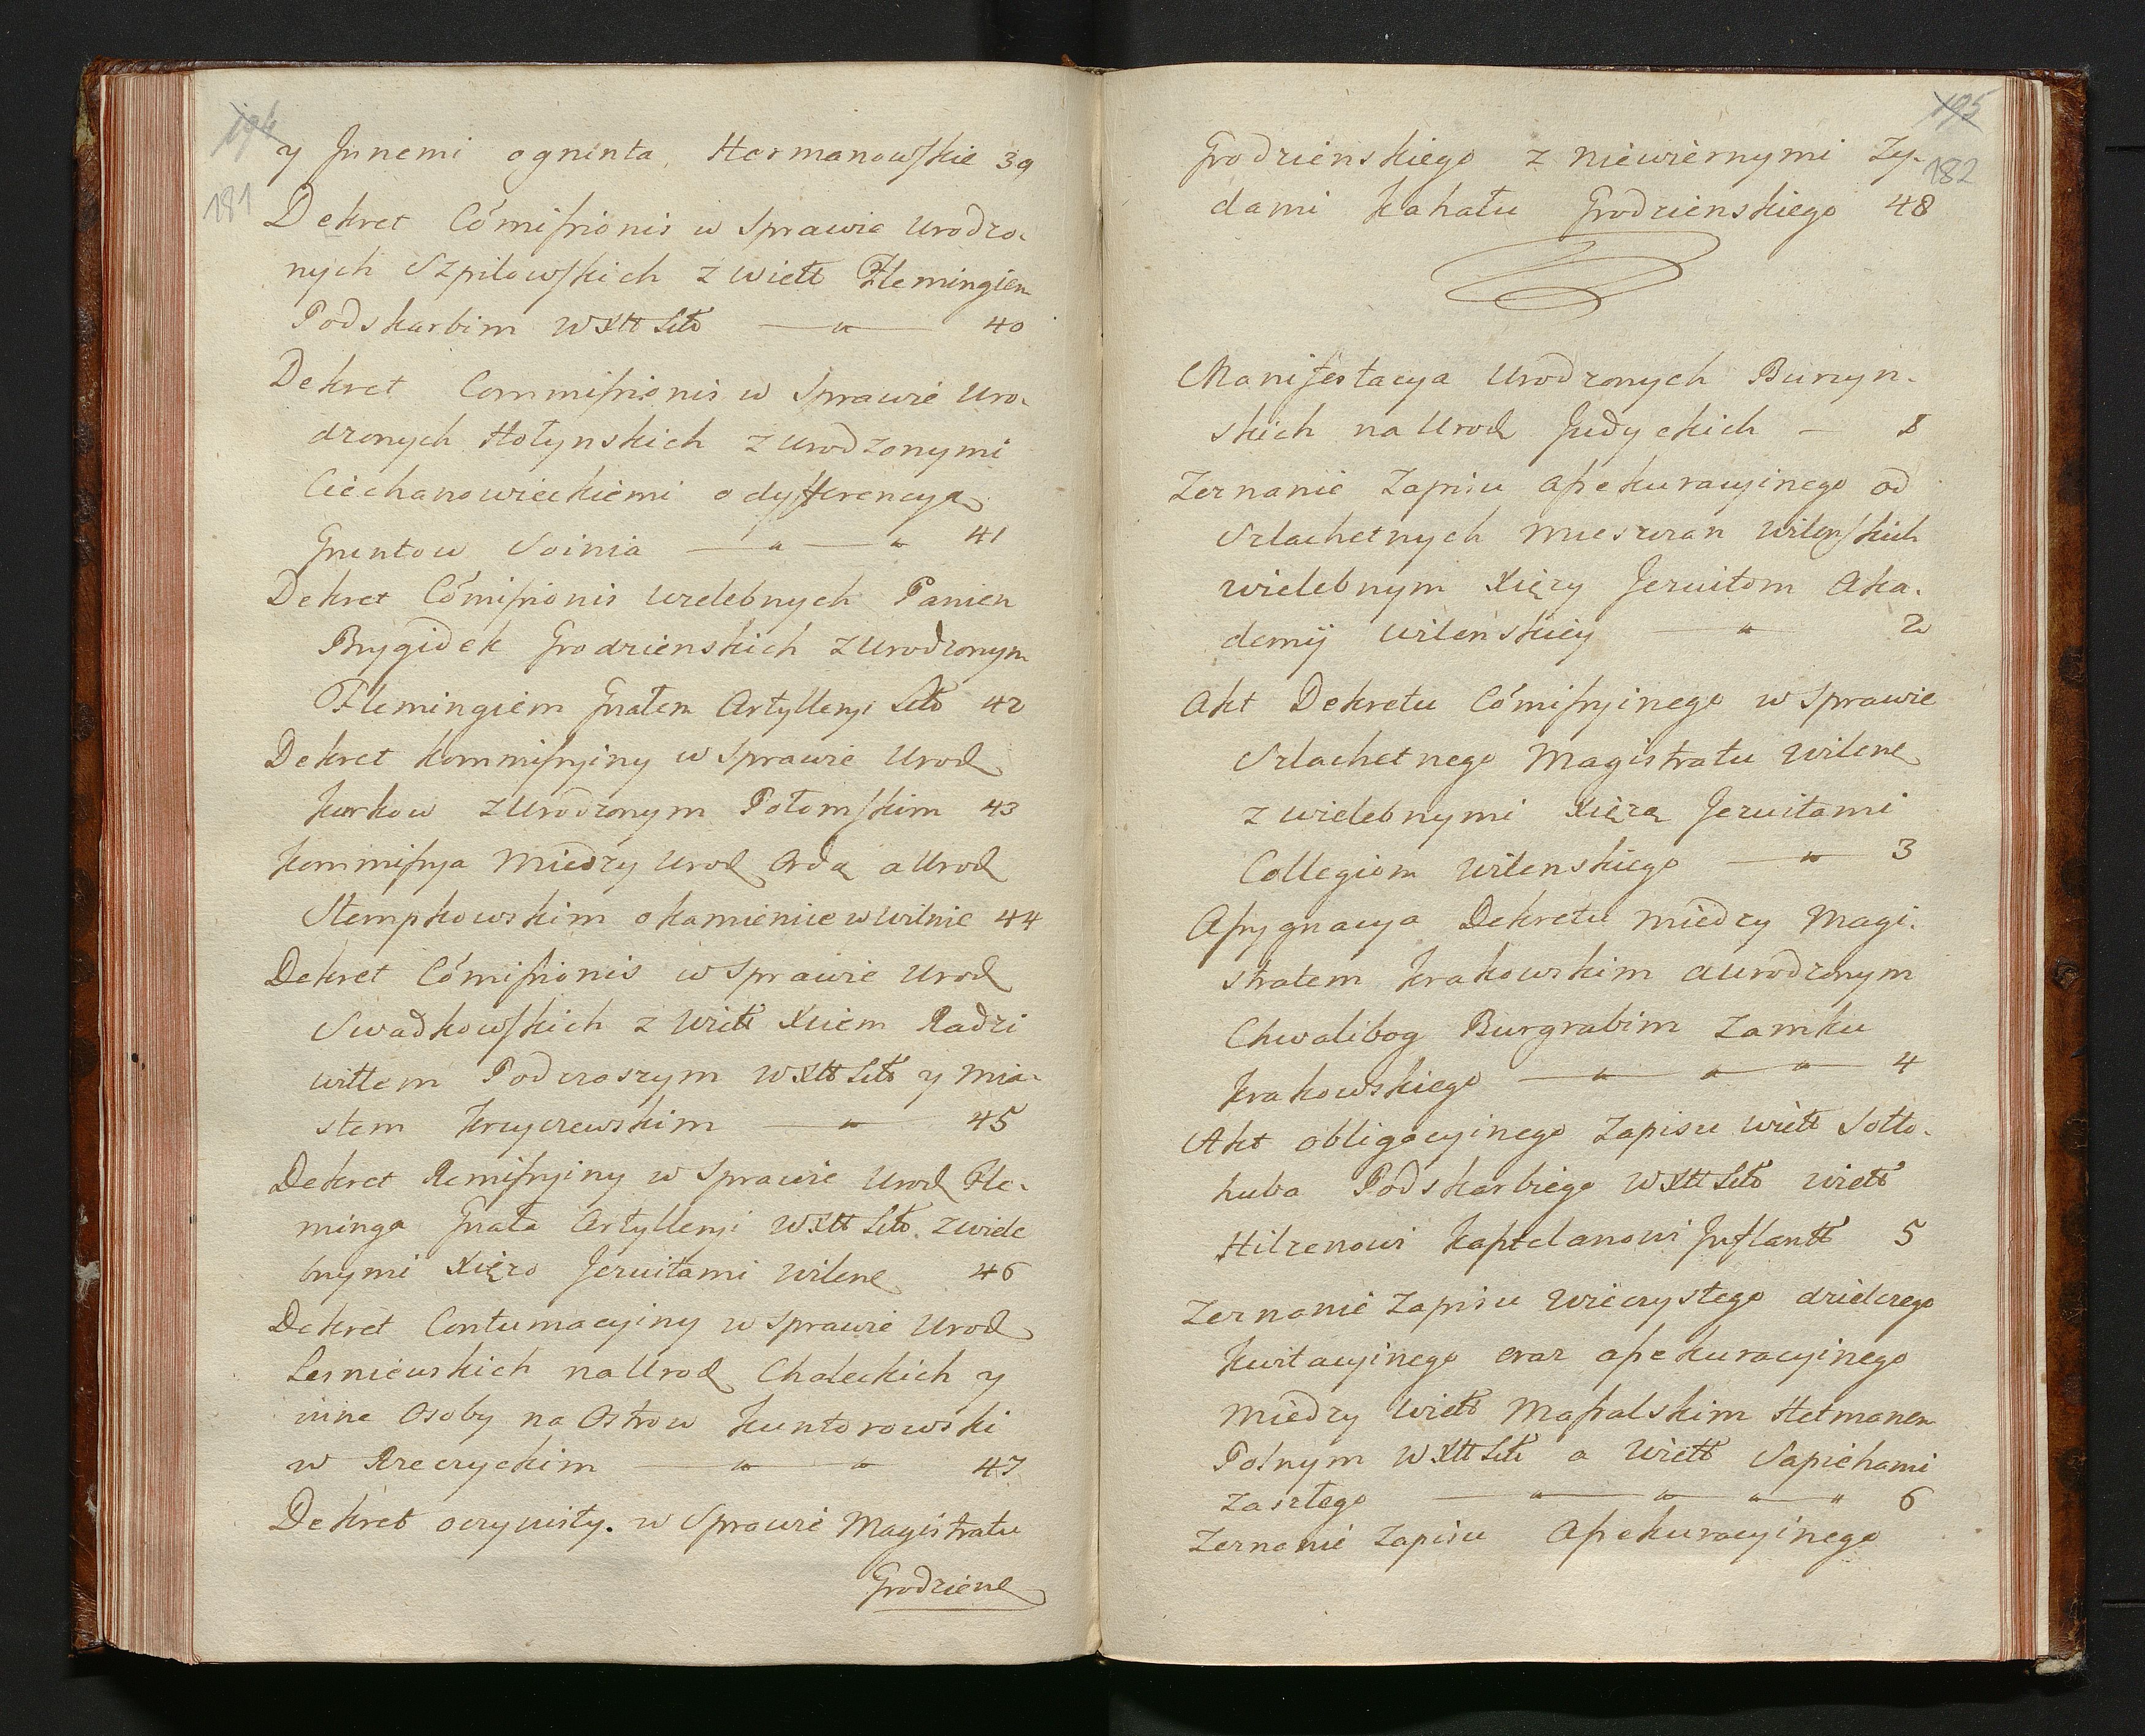 194
181
y Jnnemi ogninta Hormanowskie 39
Dekret Cómissionis w Sprawie Urodzo.
nych Szpilowskich z Wielł Flemingiem
Podskarbim WXłł Litt 40
Dekret Commissionis w Sprawie Uro.
dzonych Hołynskich z Urodzonymi
Ciechanowieckiemi o dyfferencyą
Gruntow Soinia 41
Dekret Cómissionis Wielebnych Panien
Brygidek Grodzienskich z Urodzonym
Flemingiem Gnałem Artylleryi Litt 42
Dekret Kommissyiny w Sprawie Urod
Kurkow z Urodzonym Połomskim 43
Kommissya Miedzy Urod Ordą a Urod
Stempkowskim o kamienice w Wilnie 44
Dekret Cómissionis w Sprawie Urod
Swadkowskich z Wielł Xciem Radzi
wiłłem Podczaszym WXłł Litt y Mia.
stem Kryczewskim 45
Dekret Remissyiny w Sprawie Urod Fle.
minga Gnała Artylleryi WXłł Litt. z Wiele
bnymi Xięzo Jezuitami Wilene 46
Dekret Contumacyiny w Sprawie Urod
Lesniewskich na Urod Chaleckich y
inne Osoby na Ostrow Kuntorowski
w Rzeczyckim 47
Dekret oczywisty. w Sprawie Magistratu
Grodziene
195
182
Grodzienskiego z niewiernymi Zy.
dami Kahału Grodzienskiego 48
Manifestacya Urodzonych Burzyn.
skich na Urod Judyckich 1
Zeznanie Zapisu assekuracyinego od
Szlachetnych Mieszczan Wilenskich
Wielebnym Xięzy Jezuitom Aka.
demij Wilenskiey 2
Akt Dekretu Cómissyinego w Sprawie
Szlachetnego Magistratu Wilene
z Wielebnymi Xięzą Jezuitami
Collegium Wilenskiego 3
Assygnacya Dekretu miedzy Magi.
stratem Krakowskim a Urodzonym
Chwalibog Burgrabim Zamku
Krakowskiego 4
Akt obligacyinego Zapisu Wielł Sołło.
huba Podskarbiego WXłł Litt Wielł
Hilzenowi Kasztelanowi Jnflantt 5
Zeznanie Zapisu Wieczystego dzielczego
Kwitacyinego oraz assekuracyinego
Miedzy Wielł Massalskim Hetmanem
Polnym WXłł Litt a Wielł Sapiehami
Zaszłego 6
Zeznanie Zapisu Assekuracyinego